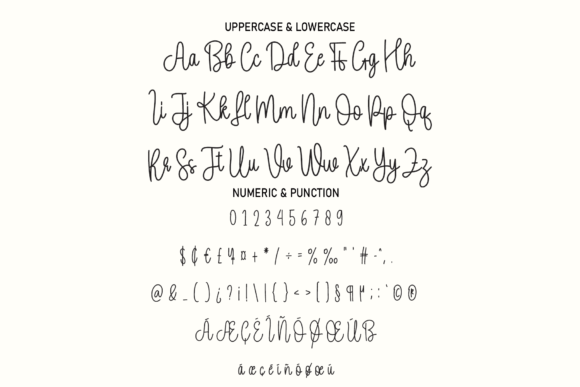 UPPERCASE & LOWERCASE
Aa Bb Cc Dd Ee Ff Gg Hh
Ii Jj Kk Ll Mm Nn Oo Pp Qq
Rr Ss Tt Uu Vv Ww Xx Yy Zz
NUMERIC & PUNCTION
0 1 2 3 4 5 6 7 8 9
$ ¢ € £ ¥ ¤ + * / ÷ = % ‰ " ' # - ^ , .
@ & _ ( ) ¿ ? ¡ ! \ | { } < > [ ] § ¶ µ ; : ' © ®
Á Æ Ç É Î Ñ Ô Ø Œ Ú ß
á æ ç é î ñ ô ø œ ú